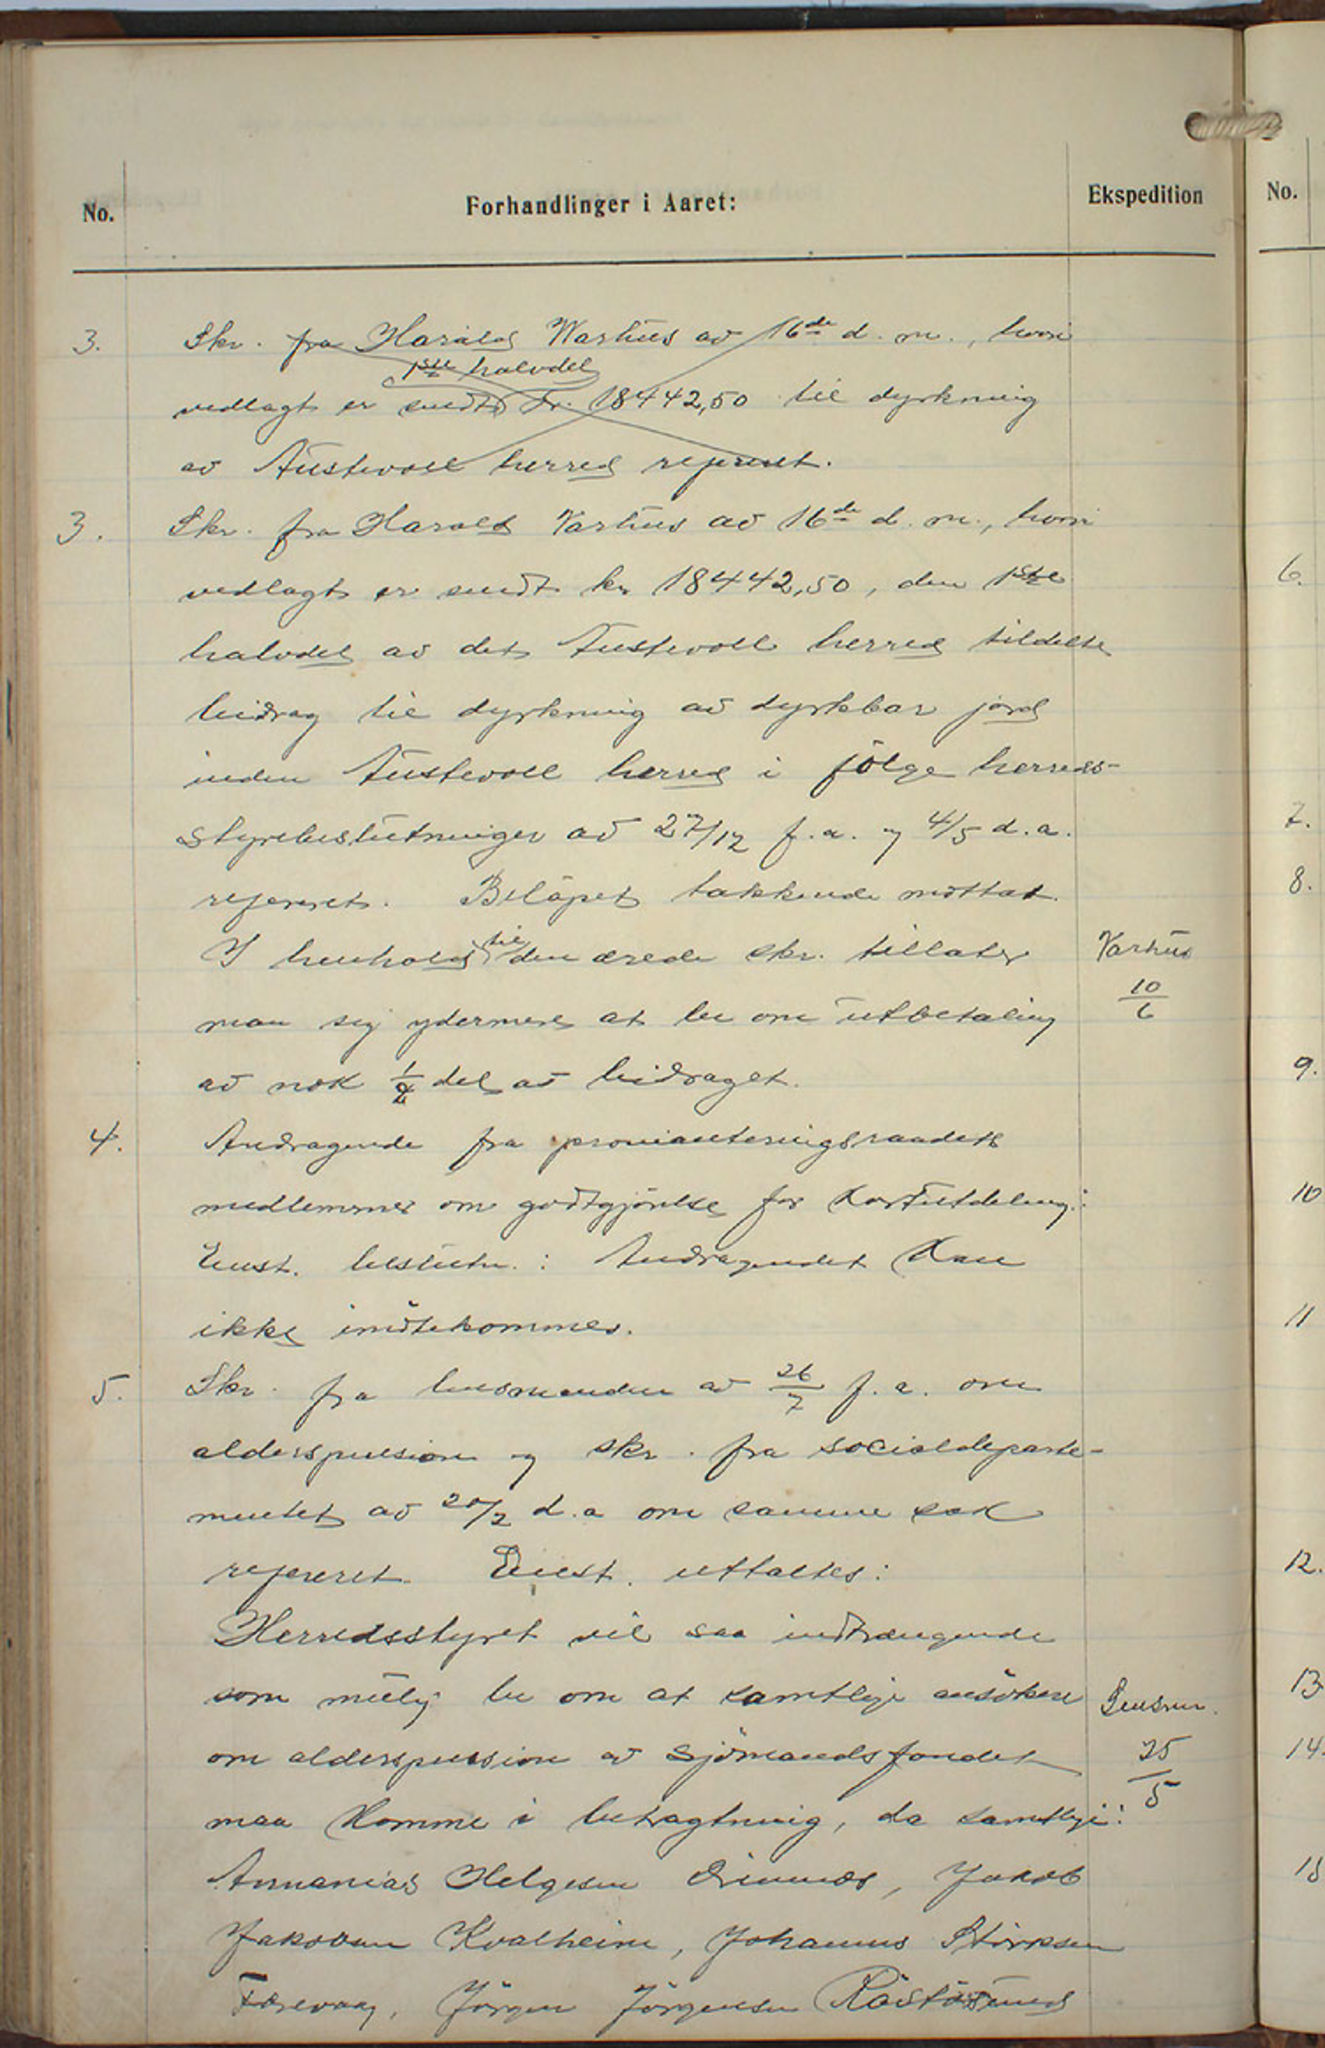 No. Forhandlinger i Aaret: Ekspedition No.
3. Skr. fra Harald Warhus av 16de d. m., hvori
1ste halvdel
vedlagt er sendt kr. 18442,50 til dyrkning
av Austevoll herred referert.
3. Skr. fra Harald Varhus av 16de d. m., hvori
vedlagt er sendt kr 18442,50, den 1ste
halvdel av det Austevoll herred tildelte
bidrag til dyrkning av dyrkbar jord
inden Austevoll herred i følge herreds-
styrebeslutninger av 27/12 f.a. og 4/5 d.a.
referert. Beløpet takkende mottat.
I henhold til den ærede skr. tillater Varhus
man sig ydermere at be om utbetaling 10/6
av nok 1/2 del av bidraget.
4. Andragende fra provianteringsraadets
medlemmer om godtgjørelse for kortutdeling:
Enst. beslutn.: Andragendet kan
ikke imøtekommes.
5. Skr. fra lensmanden av 26/7 f.a. om
alderspension og skr. fra socialdeparte-
mentet av 20/2 d.a om samme sak
referert. Enst. uttaltes:
Herredsstyret vil saa indtrængende
som mulig be om at samtlige ansøkere Lensm.
om alderspension av sjømandsfondet 25/5
maa komme i betragtning, da samtlige:
Annanias Helgesen Drinnes, Jakob
Jakobsen Kvalheim, Johannes Størksen
Færevaag, Jørgen Jørgensen Røstøsund
6.
7.
8.
9.
10
11
12.
13
14.